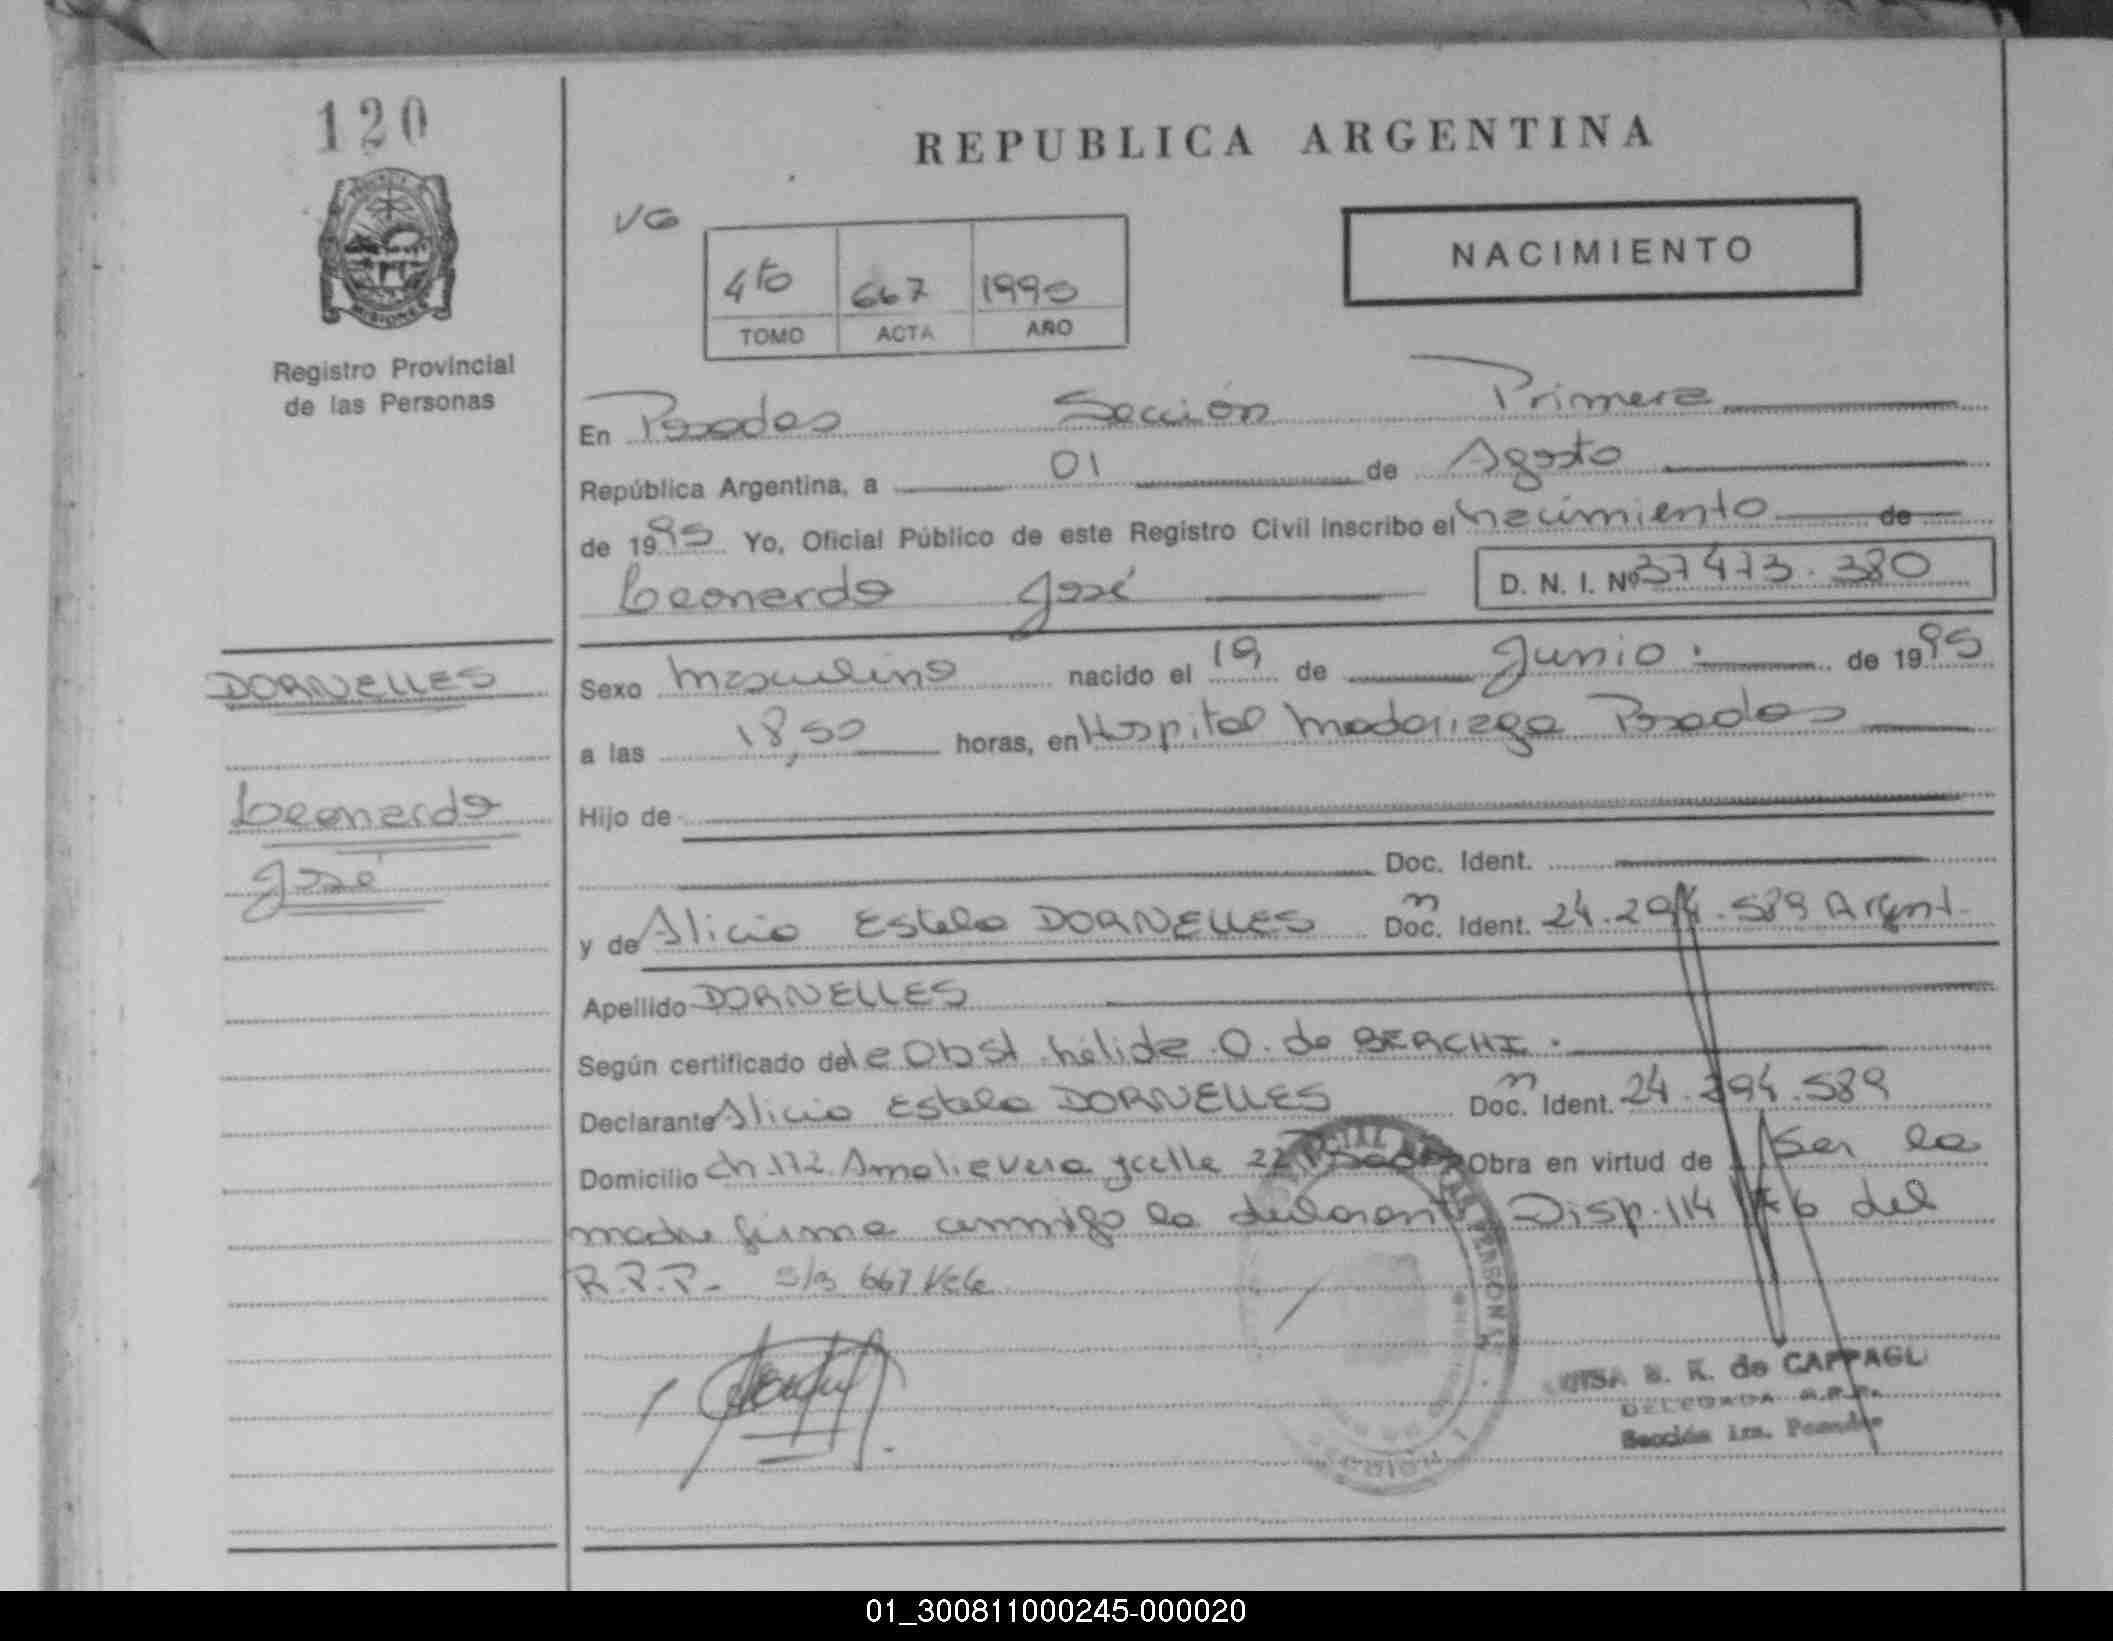 120
REPUBLICA ARGENTINA
NACIMIENTO
VG
4to 667 1995
TOMO ACTA AÑO
Registro Provincial
de las Personas
En Posadas Sección Primera
República Argentina, a 01 de Agosto
de 1995 Yo, Oficial Público de este Registro Civil inscribo el nacimiento de
Leonardo José D. N. I. Nº 37473.380
DORNELLES
Leonardo
José
Sexo masculino nacido el 19 de Junio de 1995
a las 18,50 horas, en Hospital Madariaga Posadas
Hijo de
Doc. Ident.
y de Alicia Estela DORNELLES Doc. Ident. 24.294.589 Argent.
Apellido DORNELLES
Según certificado de la Obst. Nélida O. de BERCHI.
Declarante Alicia Estela DORNELLES Doc. Ident. 24.294.589
Domicilio ch 112 y calle Obra en virtud de Ser la
madre firma conmigo la declarante Disp. 114 del
R.P.P. 667 Vale
DE CAPPAGLI
DELEGADA R.P.P.
Sección 1ra. Posadas
01_300811000245-000020